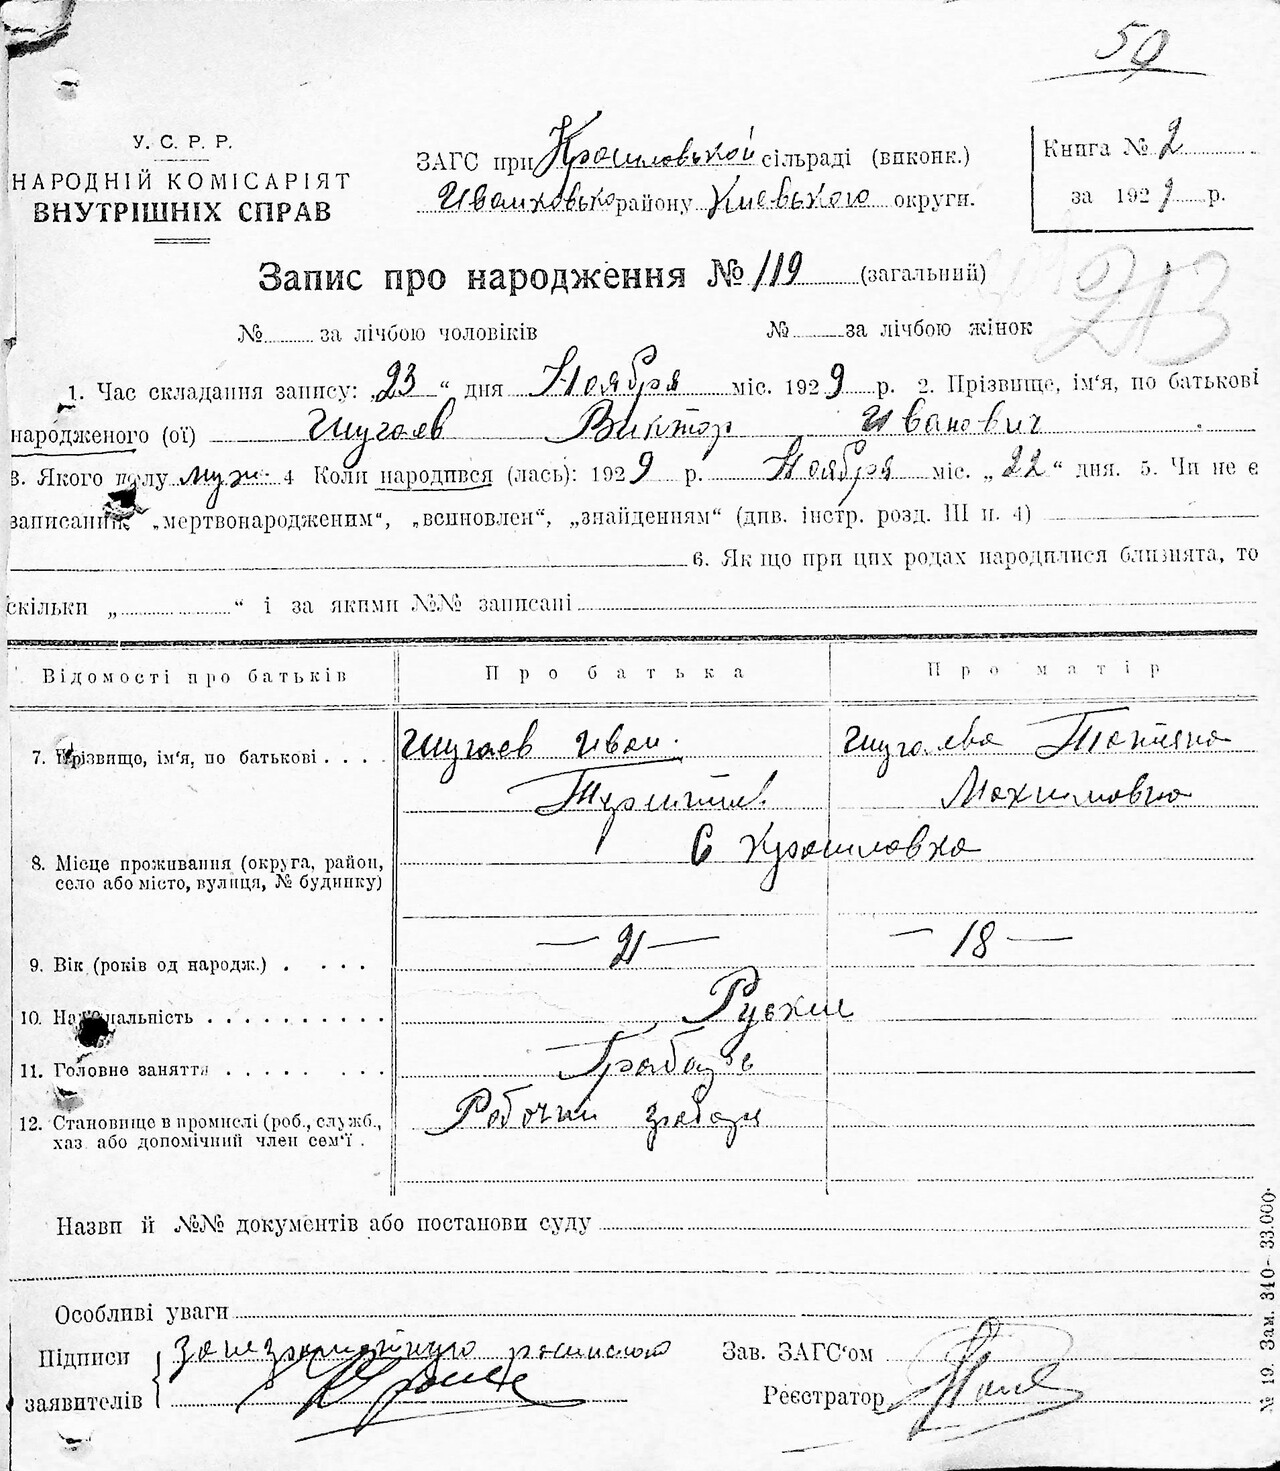 59
У. С. Р. Р.
НАРОДНІЙ КОМІСАРІЯТ
ВНУТРІШНІХ СПРАВ
ЗАГС при Крашловськой сільраді (виконк.)
Иванковсько району Киевського округи.
Книга № 2
за 1929 р.
Запис про народження № 119 (загальний)
213
№ за лічбою чоловіків № за лічбою жінок
1. Час складання запису: 23 “ дня Ноября міс. 1929 р. 2. Прізвище, ім'я, по батькові
народженого (ої) Шугаев Виктор Иванович
3. Якого полу муж. 4 Коли народився (лась): 1929 р. Ноября міс. „22“ дня. 5. Чи не є
записаний: „мертвонародженим“, „всиновлен“, „знайденням“ (див. інстр. розд. III п. 4)
6. Як що при цих родах народилися близнята, то
скільки „ “ і за якими №№ записані
Відомості про батьків Про батька Про матір
7. Прізвище, ім'я, по батькові . . . . Шугаев Иван. Шугаева Татияна
Максимовна
8. Місце проживання (округа, район,
село або місто, вулиця, № будинку) С Крашловка
9. Вік (років од народж.) . . . . — 21 — — 18 —
10. Національність . . . . . . . . . . Руские
11. Головне заняття . . . . . . . . Грабарь
12. Становище в промислі (роб., служб.,
хаз. або допомічний член сем'ї . Робочий грабарь
Назви й №№ документів або постанови суду
Особливі уваги
Підписи
заявителів
за неграмотную росписался
Зав. ЗАГС'ом
Реєстратор
№ 19. Зам. 340- 33.000.